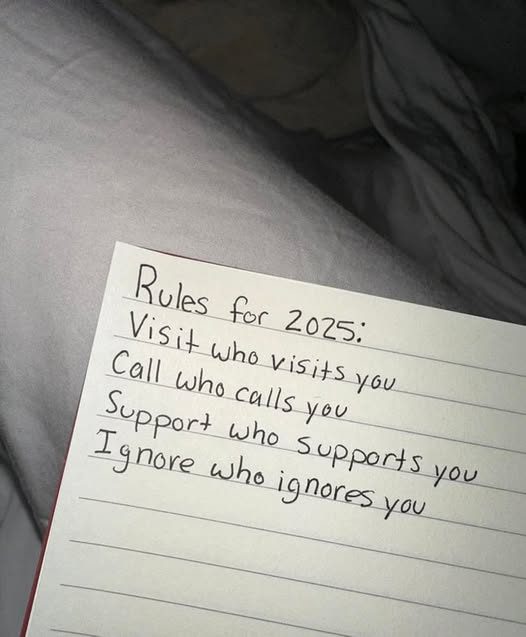 Rules for 2025:
Visit who visits you
Call who calls you
Support who supports you
Ignore who ignores you